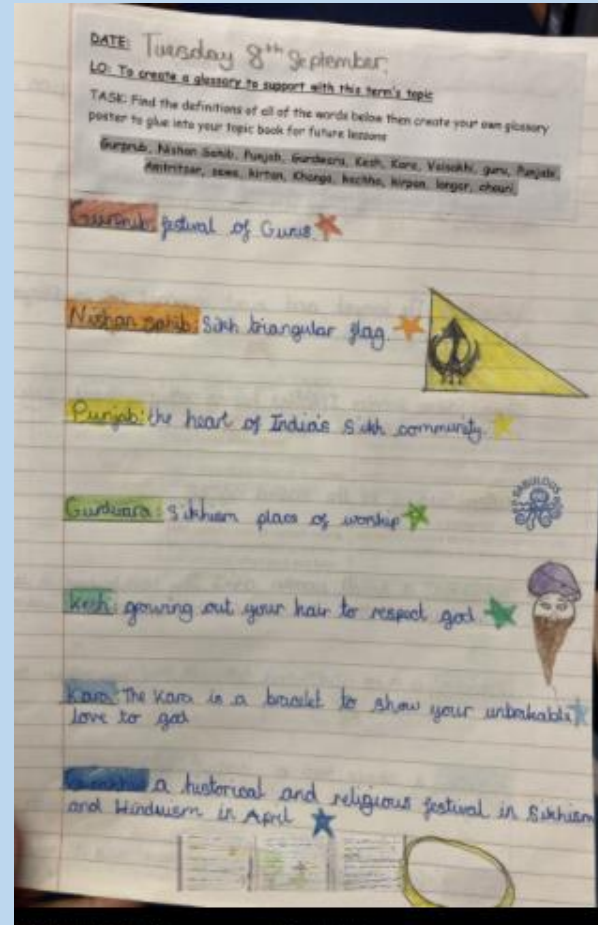 DATE: Tuesday 8th September.
LO: To create a glossary to support with this term's topic
TASK: Find the definitions of all of the words below then create your own glossary
poster to glue into your topic book for future lessons
Gurprub, Nishan Sahib, Punjab, Gurdwara, Kesh, Kara, Vaisakhi, guru, Punjabi,
Amitritsar, sewa, kirtan, Khanga, kachha, kirpan, langar, chauri,
festival of Gurus.
Nishan sahib: Sikh triangular flag.
Punjab: the heart of India's Sikh community.
FABULOUS
Gurdwara: Sikhism place of worship
Kesh: growing out your hair to respect god
Kara: The Kara is a bracelet to show your unbrakable
love to god
a historical and religious festival in Sikhism
and Hinduism in April